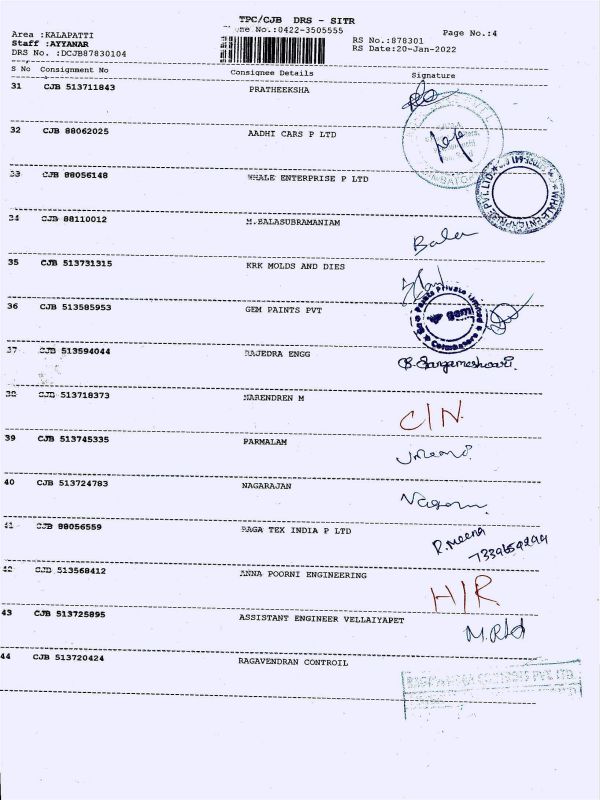 TPC/CJB DRS - SITR
Area :KALAPATTI
me No.:0422-3505555
Page No.:4
Staff :AYYANAR
RS No.:878301
DRS No. :DCJB87830104
RS Date:20-Jan-2022
S No Consignment No Consignee Details Signature
31 CJB 513711843 PRATHEEKSHA
32 CJB 88062025 AADHI CARS P LTD
33 CJB 88056148 WHALE ENTERPRISE P LTD
WHALE ENTERPRISE PVT. LTD.
34 CJB 88110012 M.BALASUBRAMANIAM
Bala
35 CJB 513731315 KRK MOLDS AND DIES
36 CJB 513585953 GEM PAINTS PVT
Gem Paints Private Limited
gem
Coimbatore
37 CJB 513594044 RAJEDRA ENGG
B. Sangameshwari.
38 CJB 513718373 NARENDREN M
C/N.
39 CJB 513745335 PARMALAM
40 CJB 513724783 NAGARAJAN
41 CJB 88056559 RAGA TEX INDIA P LTD
R.Meena
7339659294
42 CJB 513568412 ANNA POORNI ENGINEERING
H/R
43 CJB 513725895 ASSISTANT ENGINEER VELLAIYAPET
44 CJB 513720424 RAGAVENDRAN CONTROIL
CONTROLS PVT. LTD.